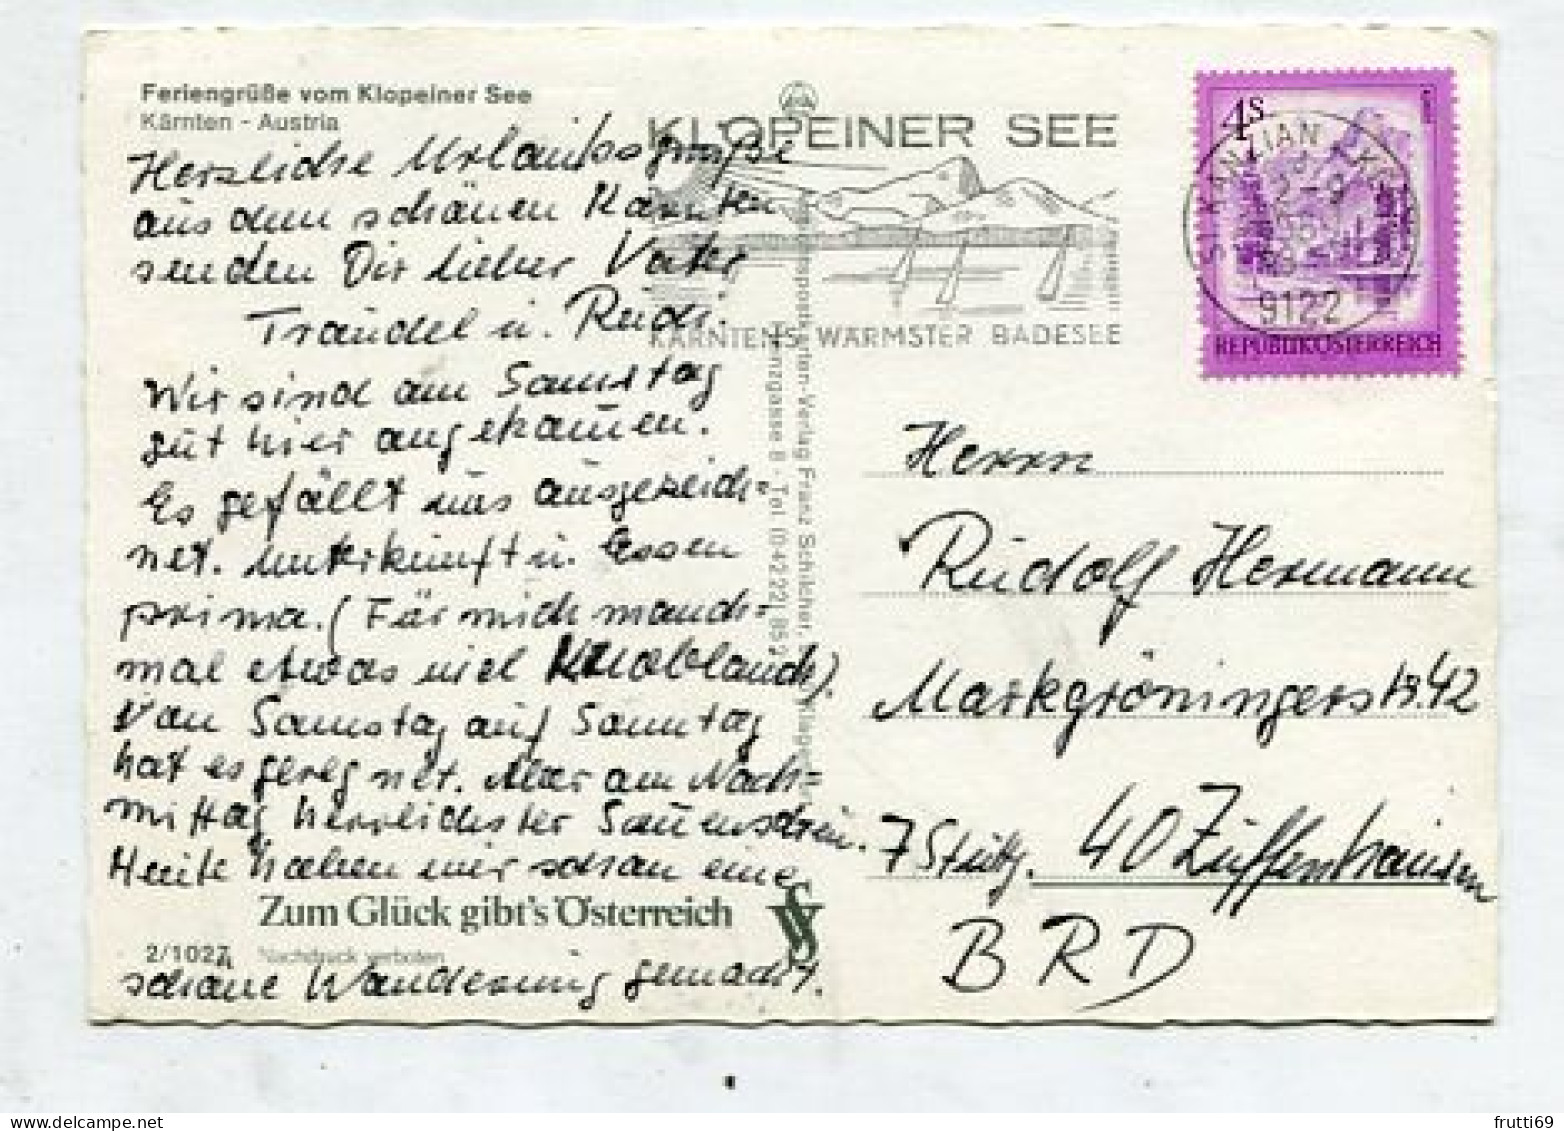 Feriengrüße vom Klopeiner See
Kärnten - Austria
Herzliche Urlaubsgrüße
aus dem schönen Kärnten
senden Dir lieber Vater
Traudel u. Rudi.
Wir sind am Samstag
gut hier angekommen.
Es gefällt uns ausgezeich=
net. Unterkunft u. Essen
prima. (Für mich manch=
mal etwas viel Knoblauch).
Von Samstag auf Sonntag
hat es geregnet. Aber am Nach=
mittag herrlichster Sonnenschein.
Heute haben wir schon eine
Zum Glück gibt's Österreich
2/1027A Nachdruck verboten
schöne Wanderung gemacht.
KLOPEINER SEE
KÄRNTENS WÄRMSTER BADESEE
Ansichtspostkarten-Verlag Franz Schilcher,
8 · Tel. (0 42 22) 85
4S
ST. KANZIAN
9122
REPUBLIK ÖSTERREICH
Herrn
Rudolf Hermann
Markgröningerstr. 42
7 Stuttg. 40 Zuffenhausen
BRD
frutti69